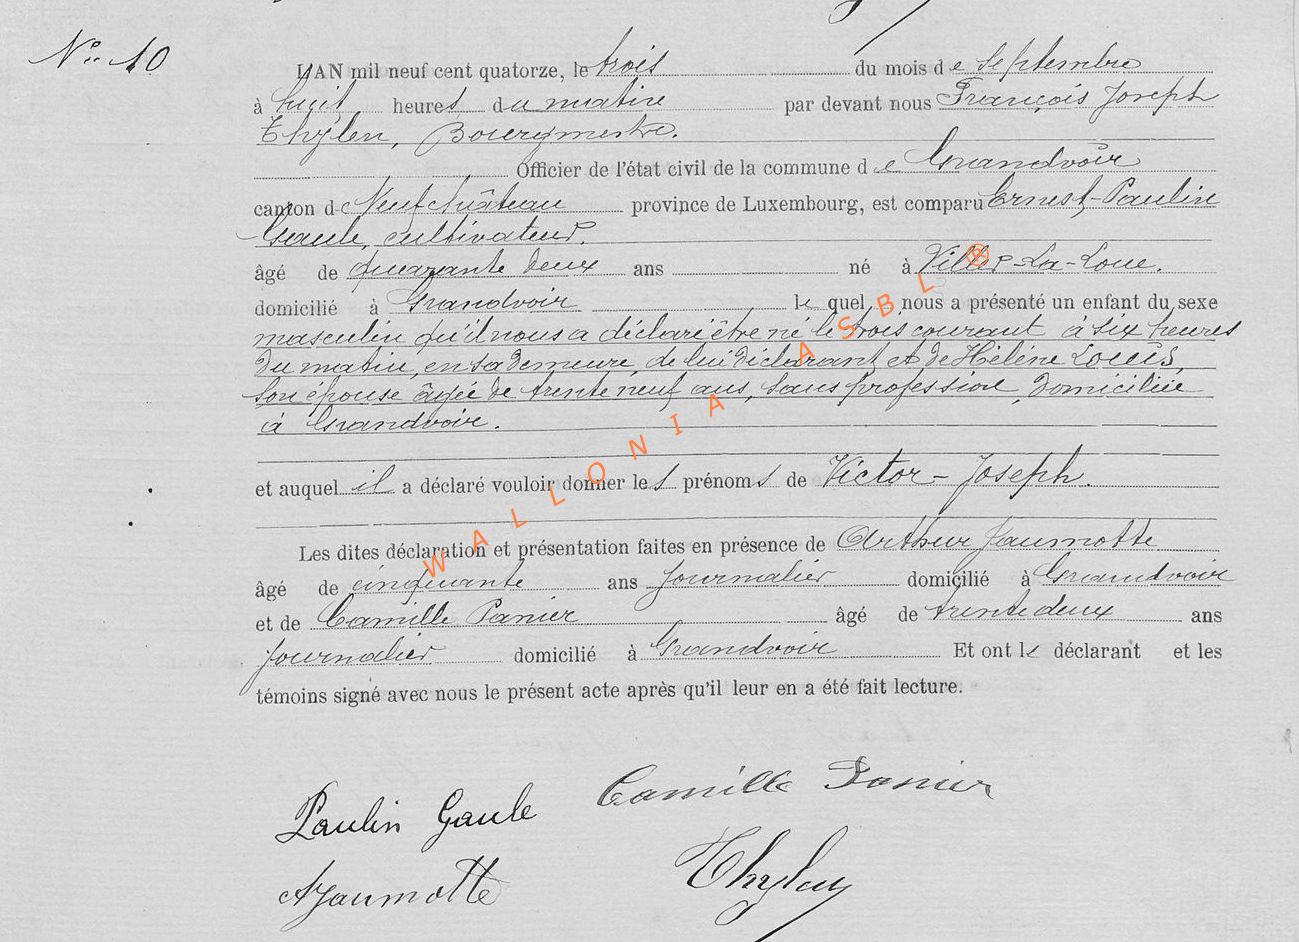 N° 10
L'AN mil neuf cent quatorze, le trois du mois de Septembre
à huit heures du matin par devant nous François Joseph
Thylen, Bourgmestre.
Officier de l'état civil de la commune de Grandvoir
canton de Neufchâteau province de Luxembourg, est comparu Ernest-Paulin
Gaule, cultivateur.
âgé de quarante deux ans né à Villers-La-Loue.
domicilié à Grandvoir lequel nous a présenté un enfant du sexe
masculin qu'il nous a déclaré être né le trois courant à six heures
du matin, en sa demeure, de lui déclarant et de Hélène Louis,
son épouse âgée de trente neuf ans, sans profession, domiciliée
à Grandvoir.
et auquel il a déclaré vouloir donner les prénoms de Victor-Joseph.
Les dites déclaration et présentation faites en présence de Arthur Jaumotte
âgé de cinquante ans journalier domicilié à Grandvoir
et de Camille Panier âgé de trente deux ans
journalier domicilié à Grandvoir Et ont le déclarant et les
témoins signé avec nous le présent acte après qu'il leur en a été fait lecture.
Paulin Gaule Camille Panier
AJaumotte Thylen
WALLONIA ASBL